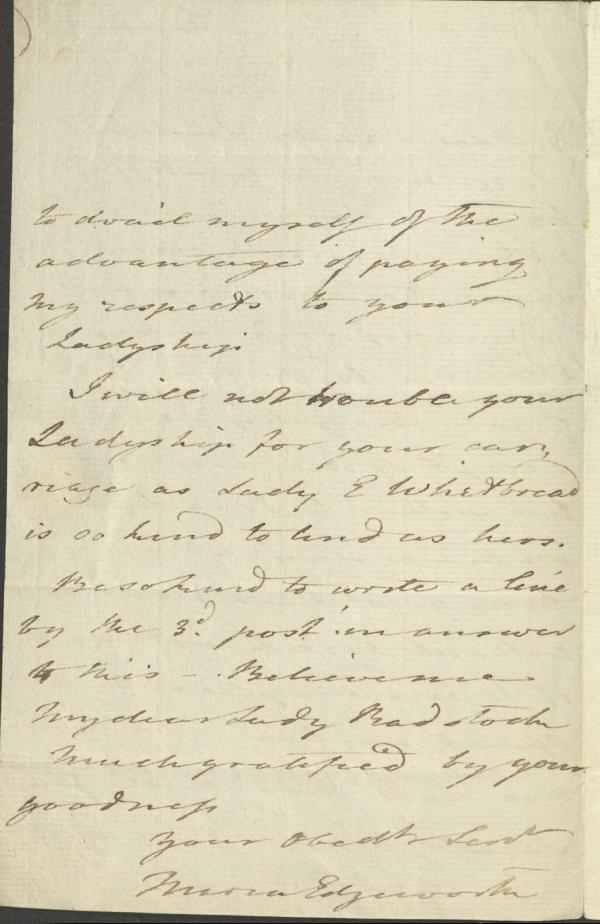 to avail myself of the
advantage of paying
my respects to your
Ladyship
I will not trouble your
Ladyship for your car,
riage as Lady E Whitbread
is so kind to lend us hers.
Be so kind to write a line
by the 3d. post in answer
to this - Believe me
My dear Lady Radstock
Much gratified by your
goodness
your Obedt Sert
Maria Edgeworth